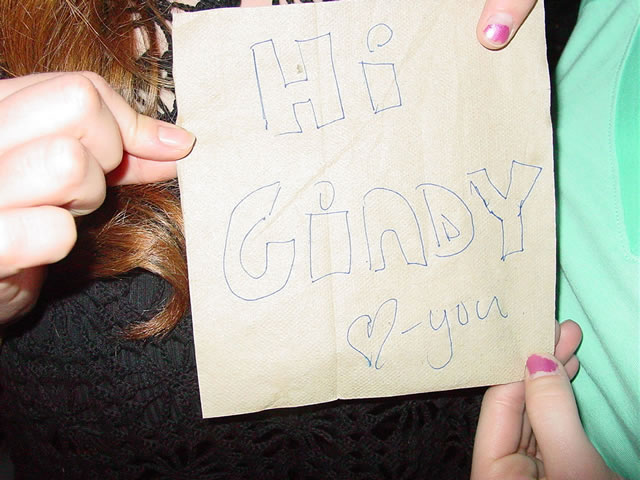 Hi
CiNDY
♡-you